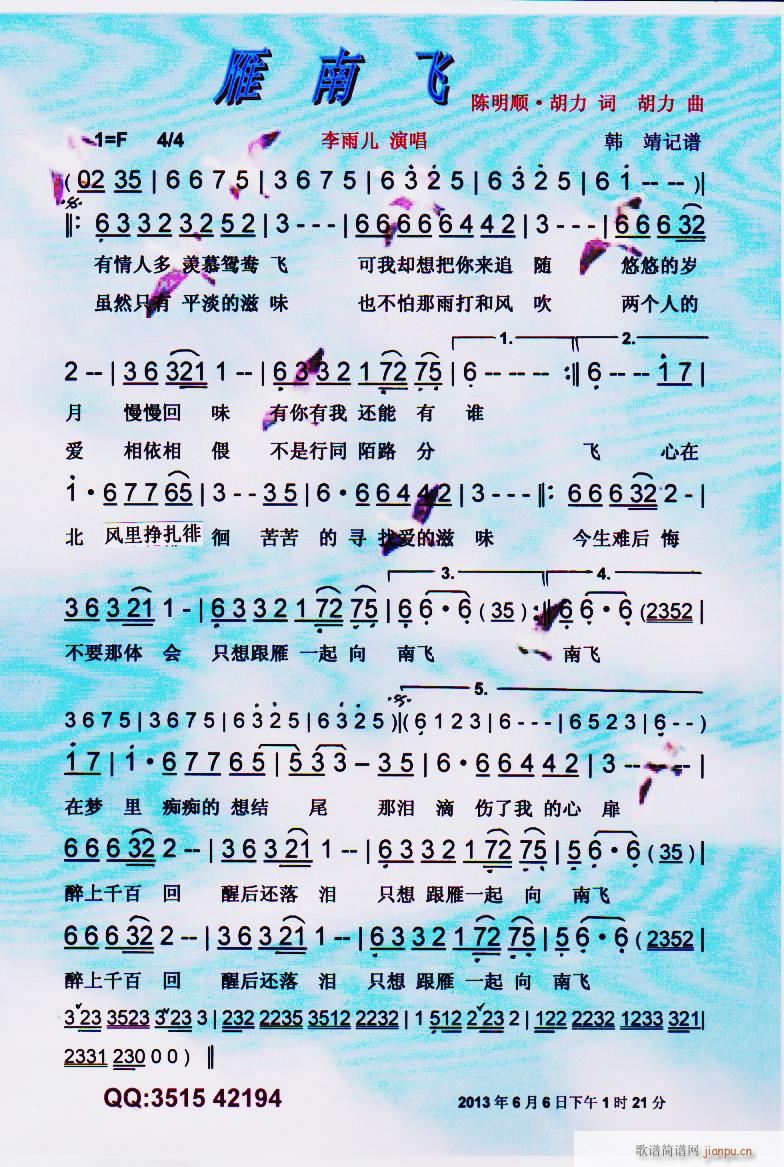 雁 南 飞
陈明顺·胡力 词 胡力 曲
1=F 4/4 李雨儿 演唱 韩 靖记谱
(02 35 | 6 6 7 5 | 3 6 7 5 | 6 3 2 5 | 6 1 - - )|
‖: 6 3 3 2 3 2 5 2 | 3 - - - | 6 6 6 6 6 4 4 2 | 3 - - - | 6 6 6 32
有情人多 羡慕鸳鸯 飞 可我却想把你来追 随 悠悠的岁
虽然只有 平淡的滋 味 也不怕那雨打和风 吹 两个人的
1. 2.
2 - - | 3 6 321 1 - - | 6 3 3 2 1 72 75 | 6 - - - :‖ 6 - - 1 7 |
月 慢慢回 味 有你有我 还能 有 谁
爱 相依相 偎 不是行同 陌路 分 飞 心在
1 · 6 7 7 65 | 3 - - 3 5 | 6 · 6 6 4 4 2 | 3 - - - ‖: 6 6 6 32 2 - |
北 风里挣扎徘 徊 苦苦 的 寻 找爱的滋 味 今生难后 悔
3. 4.
3 6 3 21 1 - | 6 3 3 2 1 72 75 | 6 6 · 6 (35) :‖ 6 6 · 6 (2352 |
不要那体 会 只想跟雁 一起 向 南飞 南飞
5.
3 6 7 5 | 3 6 7 5 | 6 3 2 5 | 6 3 2 5 )‖( 6 1 2 3 | 6 - - - | 6 5 2 3 | 6 - - )
1 7 | 1 · 6 7 7 65 | 5 3 3 - 3 5 | 6 · 6 6 4 4 2 | 3 - - - |
在梦 里 痴痴的 想结 尾 那泪 滴 伤了我 的心 扉
6 6 6 32 2 - - | 3 6 3 21 1 - - | 6 3 3 2 1 72 75 | 5 6 · 6 (35) |
醉上千百 回 醒后还落 泪 只想 跟雁一起 向 南飞
6 6 6 32 2 - - | 3 6 3 21 1 - - | 6 3 3 2 1 72 75 | 5 6 · 6 (2352 |
醉上千百 回 醒后还落 泪 只想 跟雁一起 向 南飞
3 23 3523 3 23 3 | 232 2235 3512 2232 | 1 512 2 23 2 | 122 2232 1233 321|
2331 230 0 0 ) ‖
QQ:3515 42194 2013 年 6 月 6 日下午 1 时 21 分
歌谱简谱网 jianpu.cn